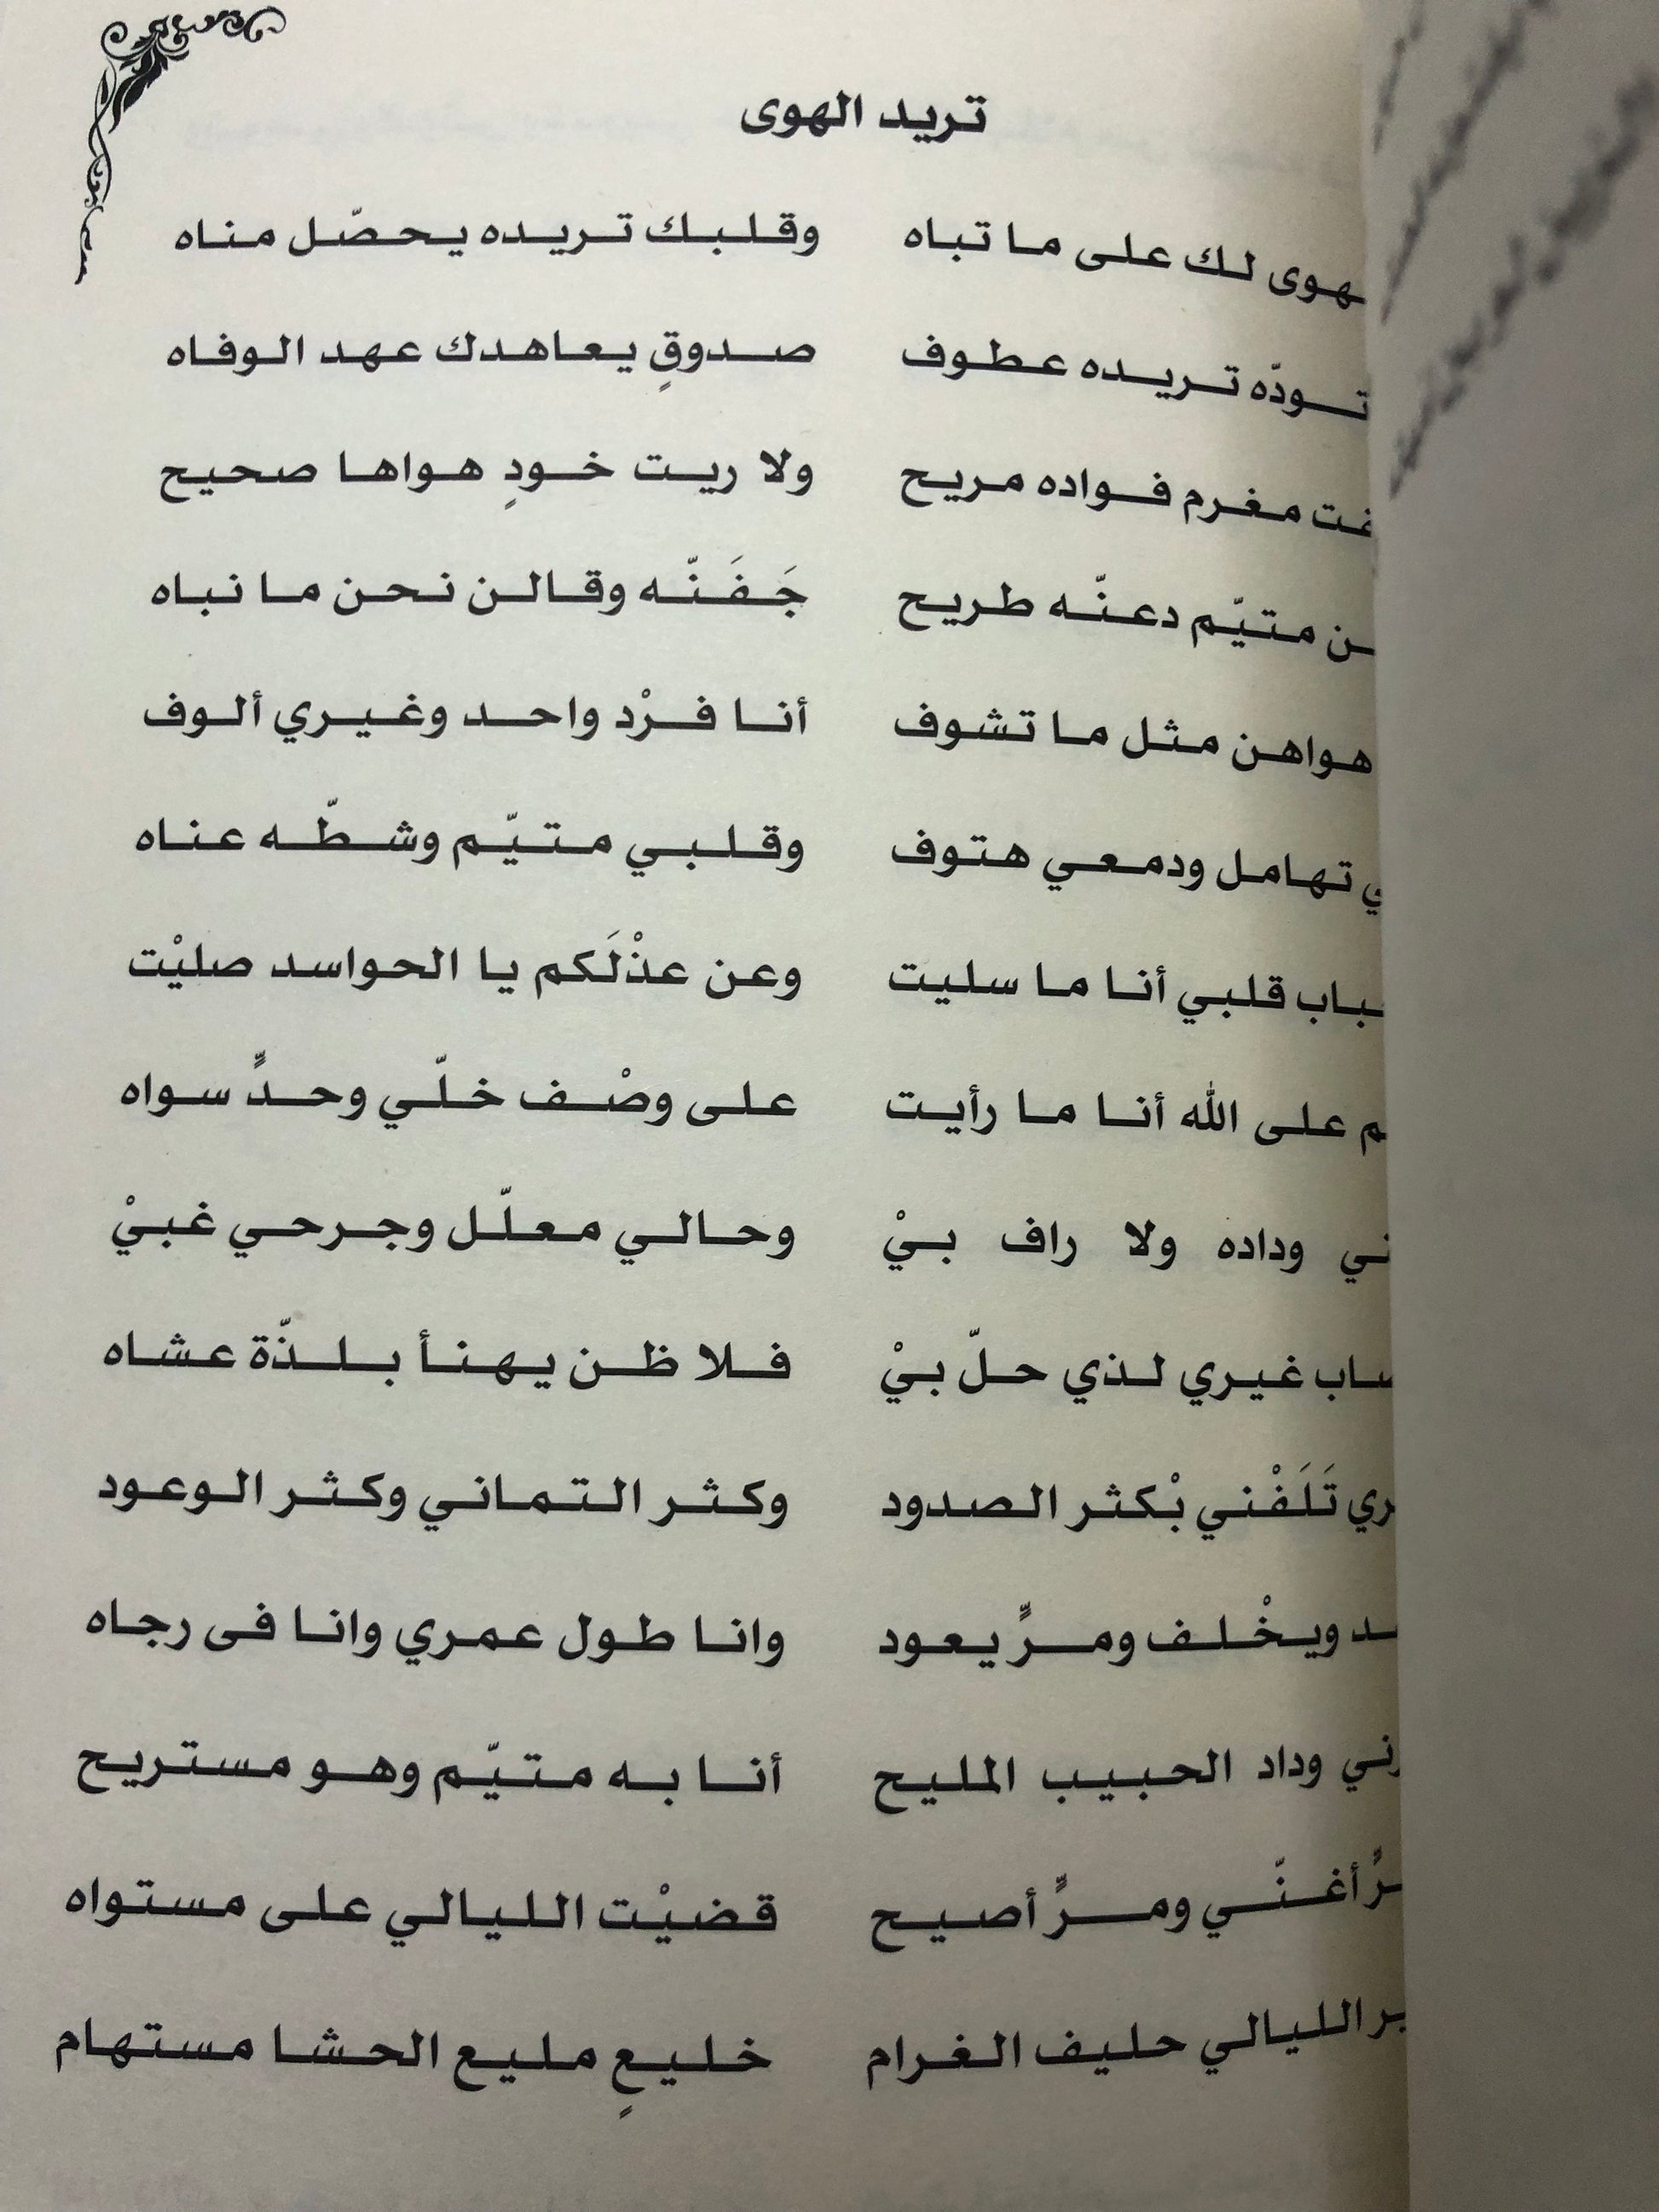 تريد الهوى
لك على ما تباه وقلبك تريده يحصّل مناه
تودّه تريده عطوف صدوقٍ يعاهدك عهد الوفاه
مغرم فواده مريح ولا ريت خودٍ هواها صحيح
متيّم دعنّه طريح جَفَنّه وقالن نحن ما نباه
هواهن مثل ما تشوف أنا فرْد واحد وغيري ألوف
تهامل ودمعي هتوف وقلبي متيّم وشطّه عناه
قلبي أنا ما سليت وعن عذْلَكم يا الحواسد صليْت
على الله أنا ما رأيت على وصْف خلّي وحدٍّ سواه
وداده ولا راف بيْ وحالي معلّل وجرحي غبيْ
غيري لذي حلّ بيْ فلا ظن يهنأ بلذّة عشاه
تَلَفْني بْكثر الصدود وكثر التماني وكثر الوعود
ويخْلف ومرٍّ يعود وانا طول عمري وانا فى رجاه
وداد الحبيب المليح أنا به متيّم وهو مستريح
أغنّي ومرٍّ أصيح قضيْت الليالي على مستواه
الليالي حليف الغرام خليعٍ مليع الحشا مستهام